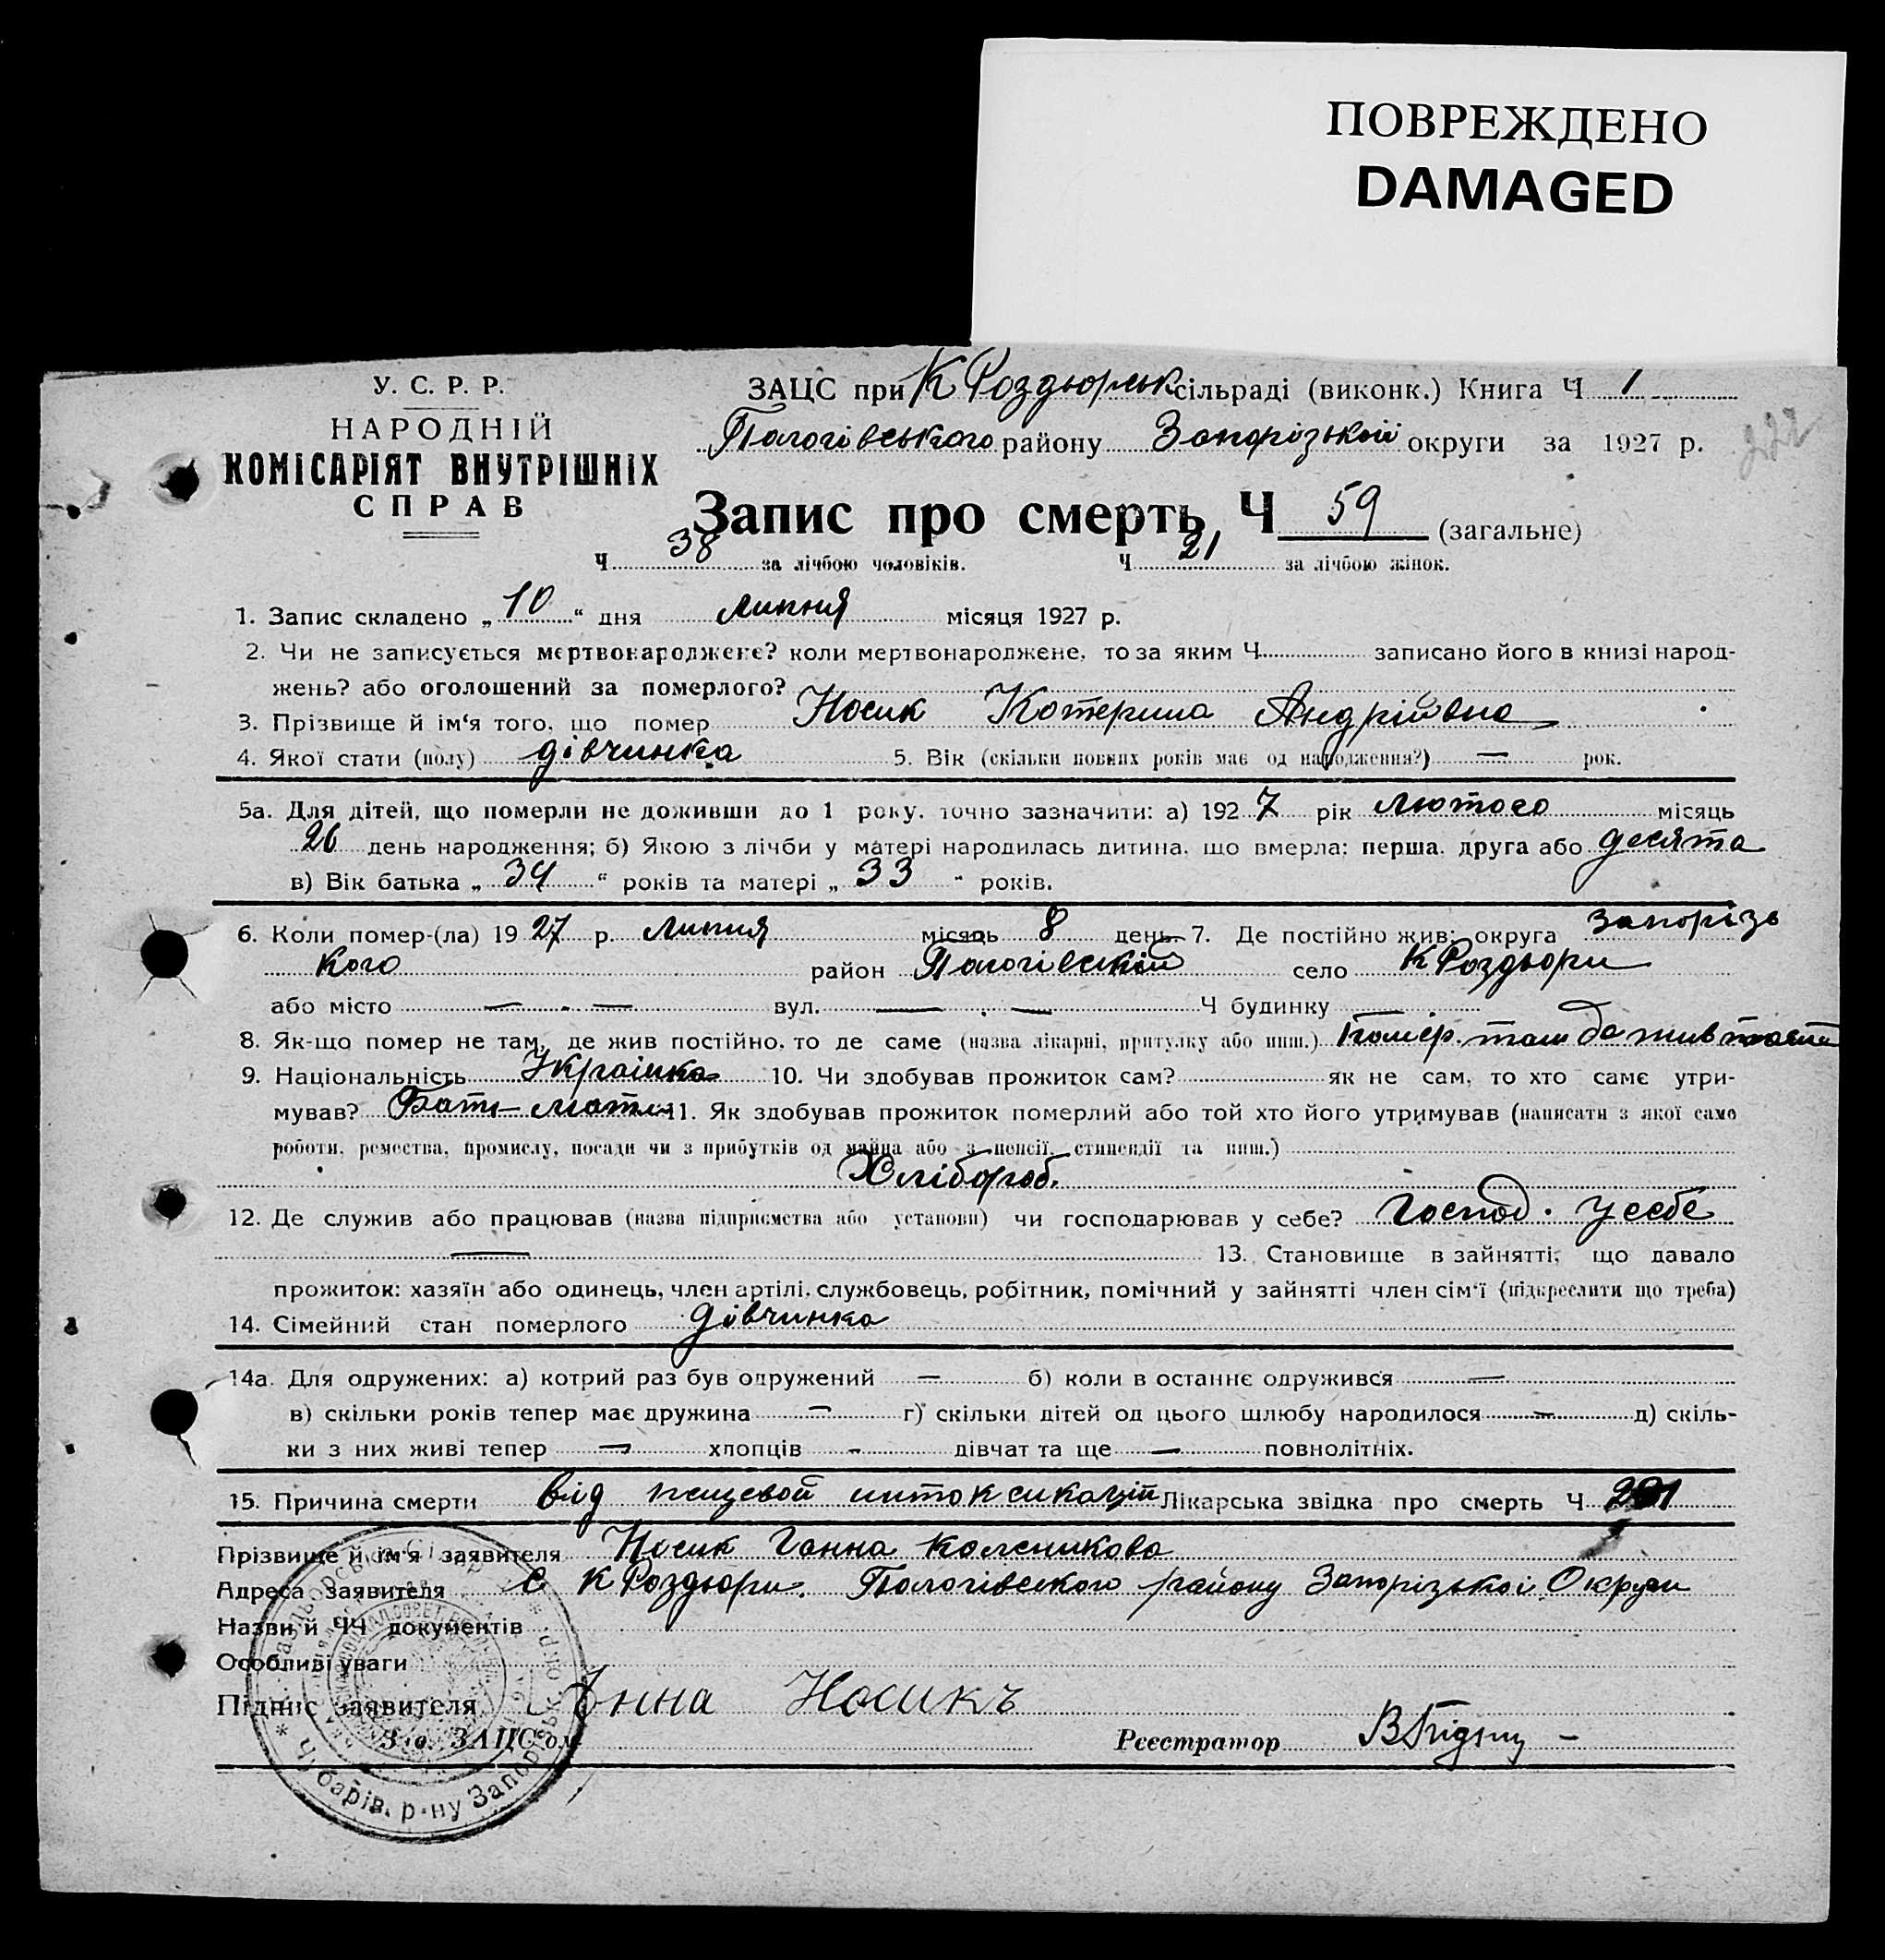 ПОВРЕЖДЕНО
DAMAGED
У. С. Р. Р.
НАРОДНІЙ
КОМІСАРІЯТ ВНУТРІШНІХ
СПРАВ
ЗАЦС при К Роздорськ сільраді (виконк.) Книга Ч 1
Пологівського району Запорізької округи за 1927 р.
222
Запис про смерть Ч 59 (загальне)
Ч 38 за лічбою чоловіків. Ч 21 за лічбою жінок.
1. Запис складено „ 10 “ дня липня місяця 1927 р.
2. Чи не записується мертвонароджене? коли мертвонароджене, то за яким Ч записано його в книзі народ-
жень? або оголошений за померлого?
3. Прізвище й ім‘я того, що помер Носик Котерина Андрійвна
4. Якої стати (полу) дівчинка 5. Вік (скільки повних років має од народження?) — рок.
5а. Для дітей, що померли не доживши до 1 року, точно зазначити: а) 192 7 рік лютого місяць
26 день народження; б) Якою з лічби у матері народилась дитина, що вмерла: перша, друга або десята
в) Вік батька „ 34 “ років та матері „ 33 “ років.
6. Коли помер-(ла) 19 27 р. липня місяць 8 день. 7. Де постійно жив: округа Запорізь
кого район Пологівський село К Роздори
або місто — — вул. — — Ч будинку
8. Як-що помер не там, де жив постійно, то де саме (назва лікарні, притулку або инш.) Помер там де жив
9. Національність Українка 10. Чи здобував прожиток сам? як не сам, то хто саме утри-
мував? Бать— мати 11. Як здобував прожиток померлий або той хто його утримував (написати з якої само
роботи, ремества, промислу, посади чи з прибутків од майна або з пенсії, стипендії та инш.)
Хлібороб.
12. Де служив або працював (назва підприємства або установи) чи господарював у себе? Господ. у себе
— 13. Становище в зайнятті, що давало
прожиток: хазяїн або одинець, член артілі, службовець, робітник, помічний у зайнятті член сім‘ї (підкреслити що треба)
14. Сімейний стан померлого дівчинка
14а. Для одружених: а) котрий раз був одружений — б) коли в останнє одружився —
в) скільки років тепер має дружина — г) скільки дітей од цього шлюбу народилося — д) скіль-
ки з них живі тепер — хлопців - дівчат та ще — повнолітніх.
15. Причина смерти від пищевой интоксикації Лікарська звідка про смерть Ч
Прізвище й ім‘я заявителя Носик Ганна
Адреса заявителя с К Роздори. Пологівського району Запорізької Округи
Назви й ЧЧ документів
Особливі уваги
Підпис заявителя Анна Носикъ
Зав. ЗАЦС‘ом Реєстратор
Чубарів. р-ну Запорізьк. окр.